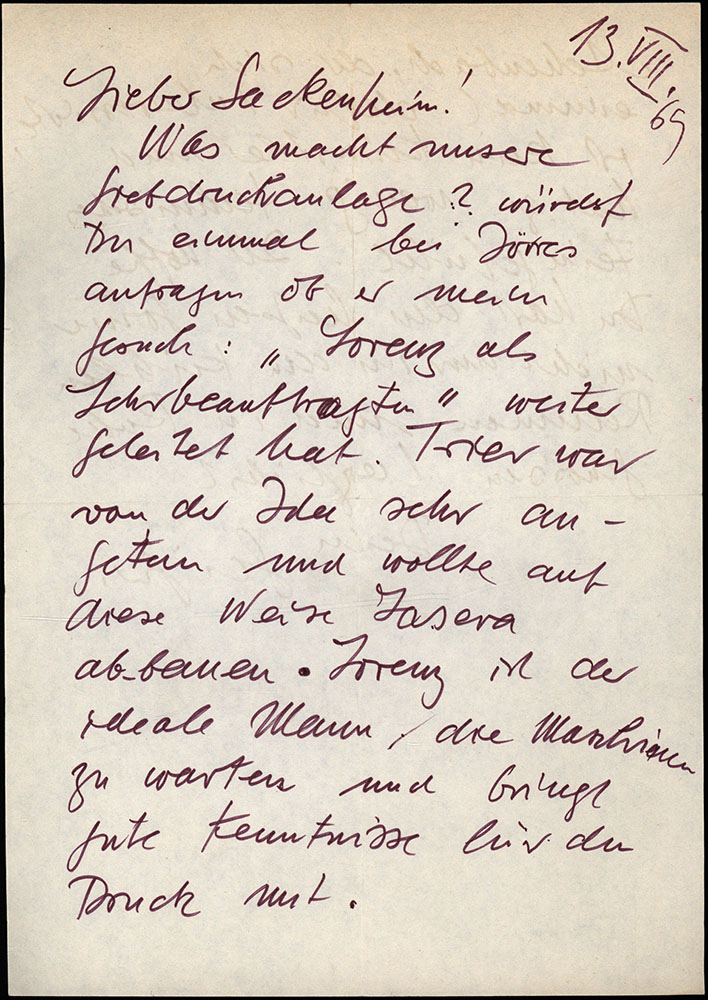 13. VIII. 69
Lieber Sackenheim!
Was macht unsere
Siebdruckanlage? würdest
Du einmal bei Jörres
anfragen ob er mein
Gesuch: „Lorenz als
Lehrbeauftragten" weiter
geleitet hat. Trier war
von der Idee sehr an-
getan und wollte auf
diese Weise
ab-bauen. Lorenz ist der
ideale Mann, die Maschinen
zu warten und bringt
gute Kenntnisse für den
Druck mit.